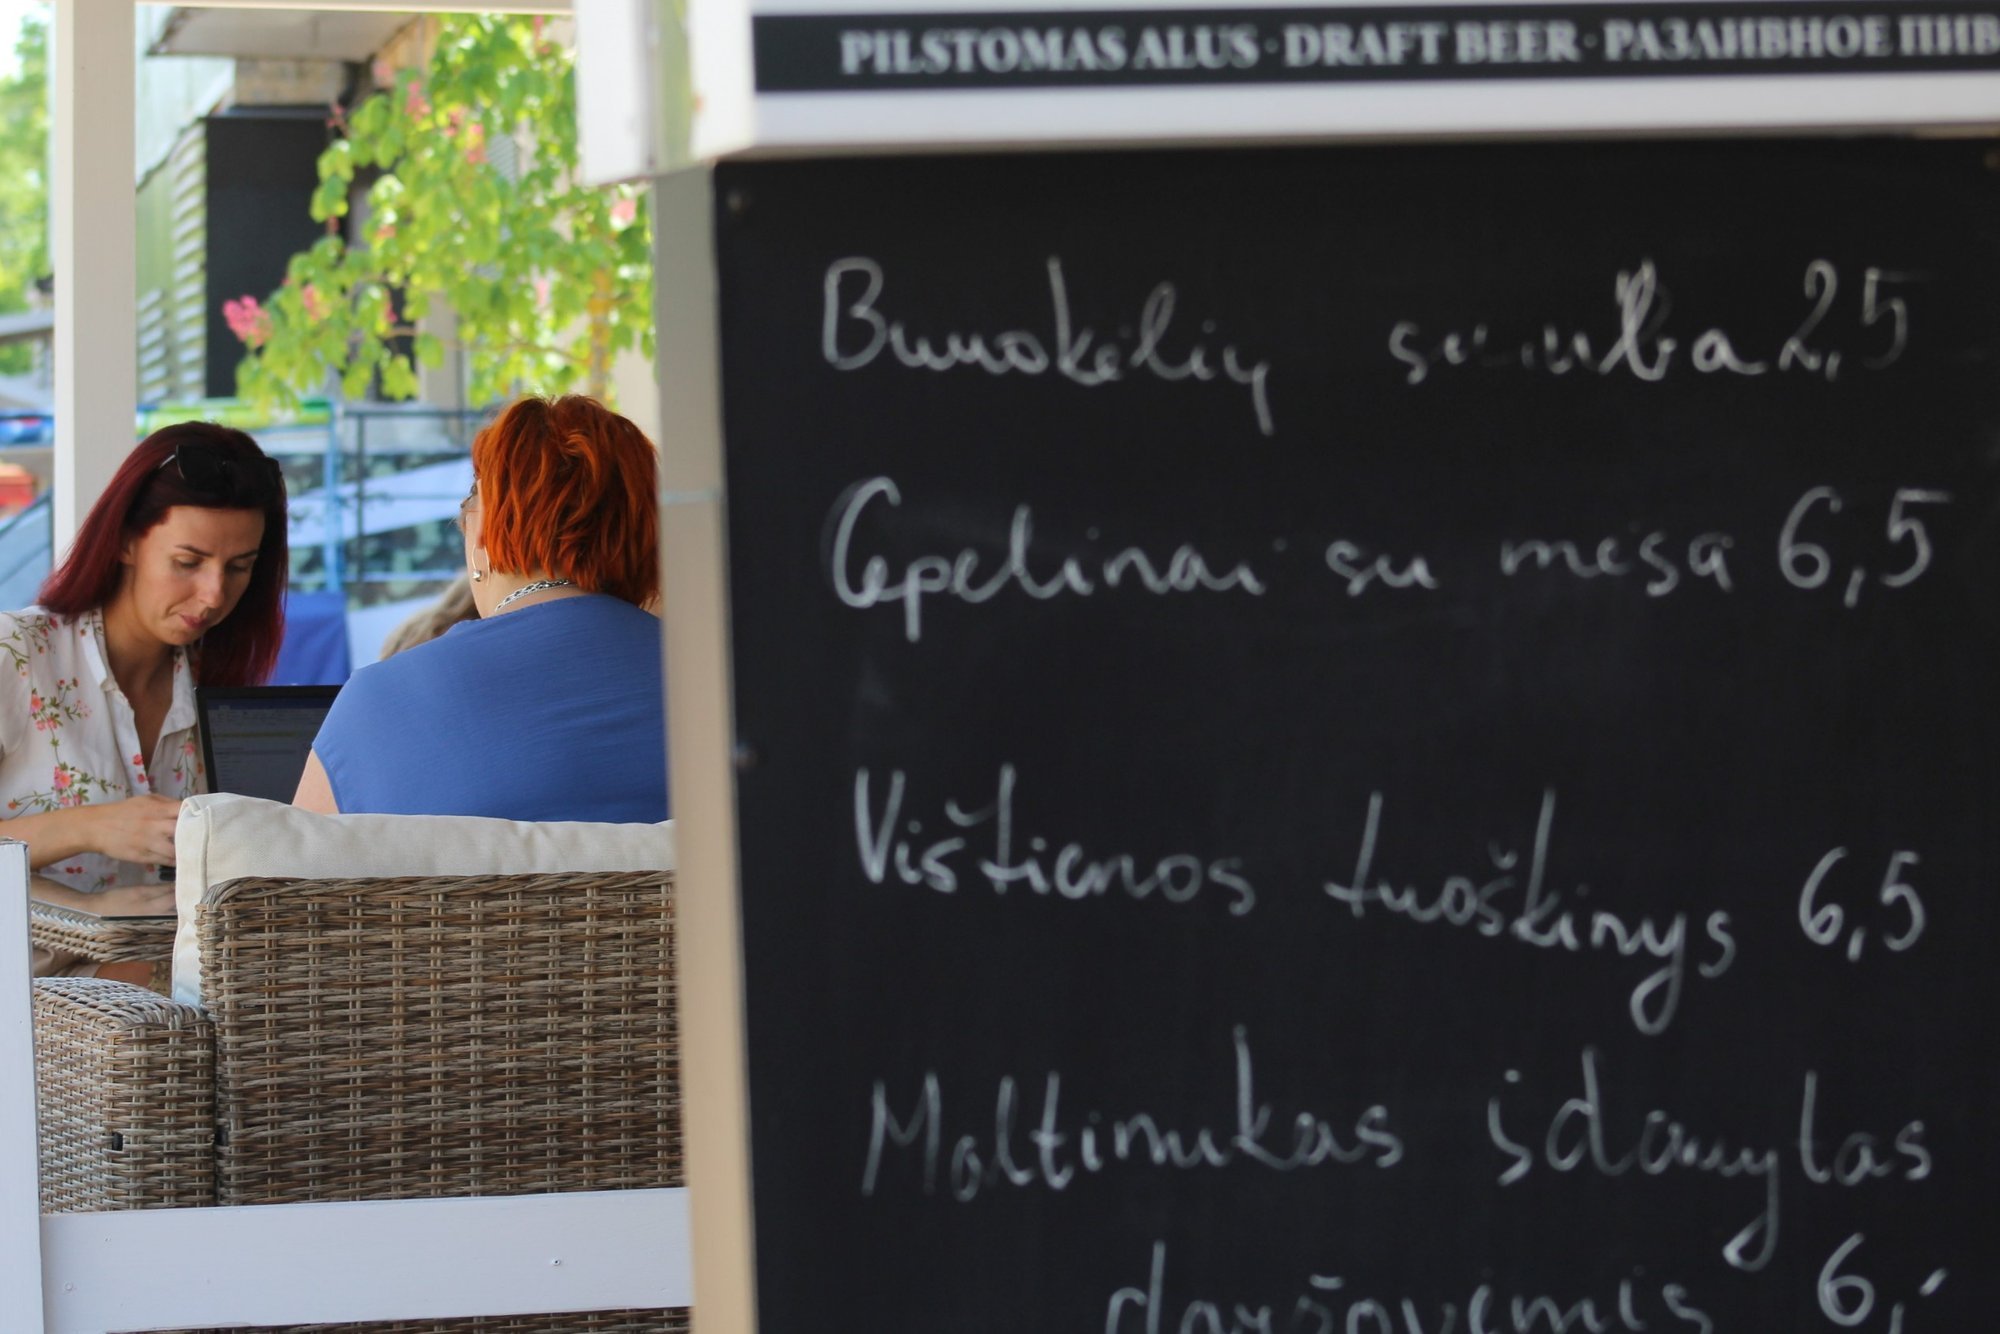 PILSTOMAS ALUS · DRAFT BEER · РАЗЛИВНОЕ ПИВ
Buuokėlių sriuba 2,5
Cepelinai su mėsa 6,5
Vištienos troškinys 6,5
Maltinukas įdarytas
daržovėmis 6,